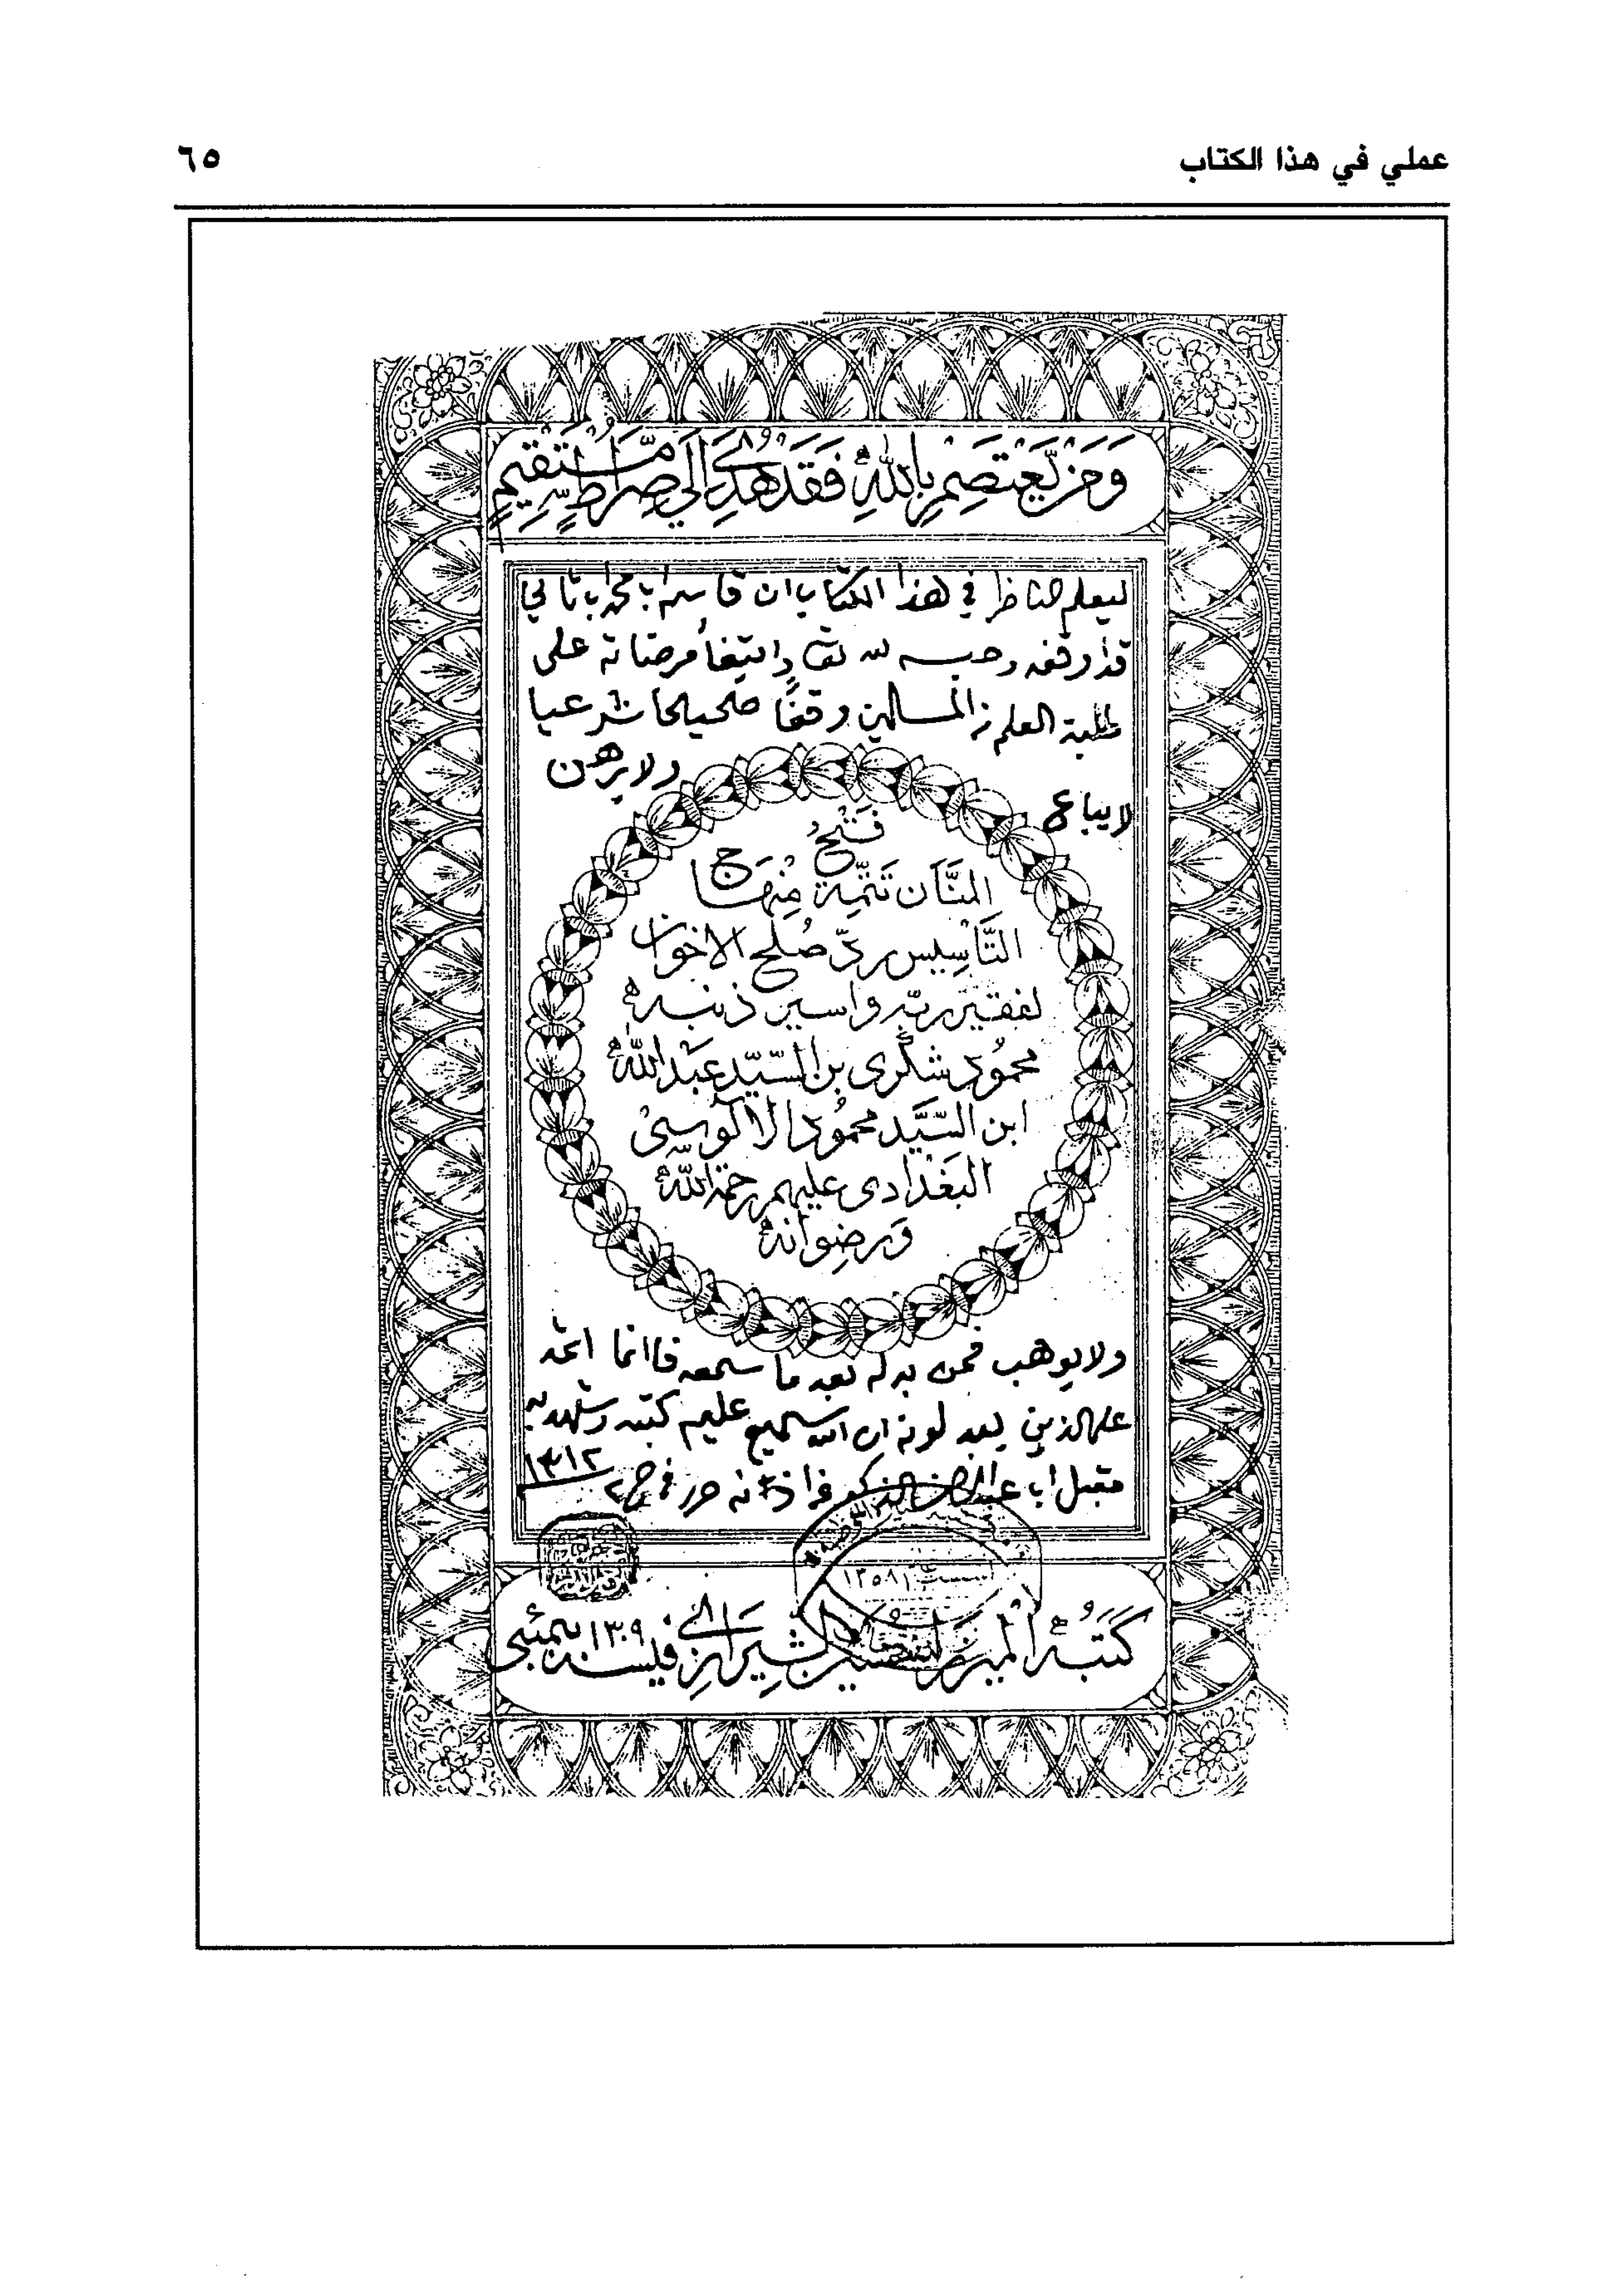 عملي في هذا الكتاب
٦٥
وَمَنْ يَّعْتَصِمْ بِاللّٰهِ فَقَدْ هُدِيَ اِلٰى صِرَاطٍ مُّسْتَقِيْمٍ
ليعلم الناظر في هذا الكتاب ان قاسم
قد وقفه وحبسه لله تعا وابتغاء مرضاته على
طلبة العلم من المسلمين وقفا صحيحا شرعيا
لا يباع ولا يرهن
فَتْحُ
المَنَّان تَتِمَّة مِنْهَاج
التَّأسِيس ردّ صُلح الاخوان
لفقير ربّه واسير ذنبه
محمُود شكرى بن السّيّد عبد اللّٰه
ابن السَّيّد محمُود الآلوسىْ
البَغْدادى عليهم رحمة اللّٰه
وَرضوانهُ
ولا يوهب فمن بدله بعد ما سمعه فانما اثمه
على الذين يبدلونه ان الله سميع عليم كتبه وشهد به
مقبل حرر في ١٣١٢
سنة ١٣٥٨
كَتَبَهُ الميرزا الشيرازي في سنه ١٣٠٩ بمبئى